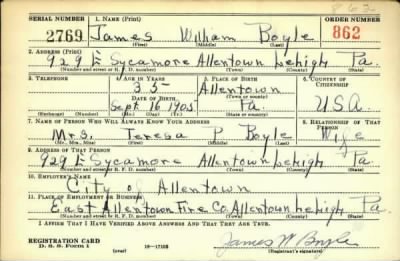 862
SERIAL NUMBER 1. NAME (Print) ORDER NUMBER
2769 James William Boyle 862
(First) (Middle) (Last)
2. ADDRESS (Print)
929 E Sycamore Allentown Lehigh Pa.
(Number and street or R. F. D. number) (Town) (County) (State)
3. TELEPHONE 4. AGE IN YEARS 5. PLACE OF BIRTH 6. COUNTRY OF CITIZENSHIP
35 Allentown
(Town or county)
DATE OF BIRTH
Sept 16 1905 Pa. U.S.A.
(Exchange) (Number) (Mo.) (Day) (Yr.) (State or country)
7. NAME OF PERSON WHO WILL ALWAYS KNOW YOUR ADDRESS 8. RELATIONSHIP OF THAT PERSON
Mrs. Teresa P Boyle Wife
(Mr., Mrs., Miss) (First) (Middle) (Last)
9. ADDRESS OF THAT PERSON
929 E Sycamore Allentown Lehigh Pa.
(Number and street or R. F. D. number) (Town) (County) (State)
10. EMPLOYER'S NAME
City of Allentown
11. PLACE OF EMPLOYMENT OR BUSINESS
East Allentown Fire Co. Allentown Lehigh Pa.
(Number and street or R. F. D. number) (Town) (County) (State)
I AFFIRM THAT I HAVE VERIFIED ABOVE ANSWERS AND THAT THEY ARE TRUE.
REGISTRATION CARD
D. S. S. Form 1 (over) 16—17105 James W Boyle
(Registrant's signature)